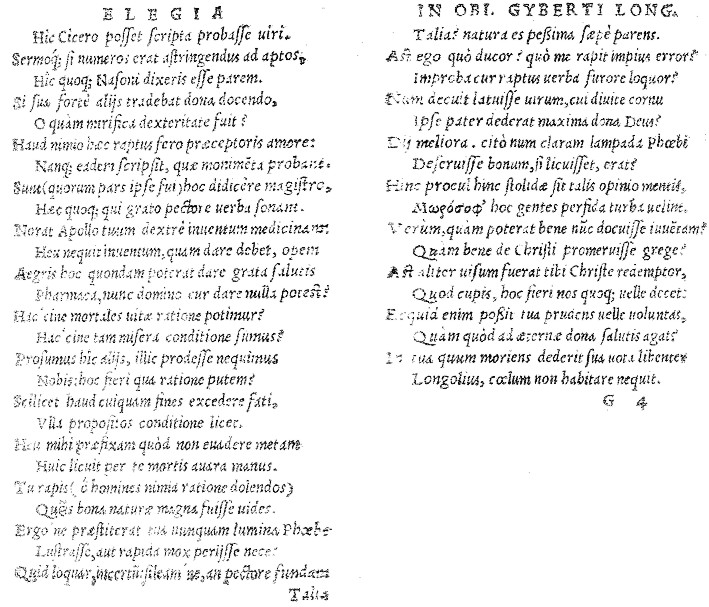 ELEGIA
Hic Cicero posset scripta probasse uiri.
Sermoq; si numeros erat astringendus ad aptos,
Hic quoq; Nasoni dixeris esse parem.
Si sua fortè alijs tradebat dona docendo,
O quàm mirifica dexteritate fuit?
Haud nimio hæc raptus fero præceptoris amore:
Nanq; eadem scripsit, quæ monimēta probant.
Sunt (quorum pars ipse fui) hoc didicêre magistro,
Hæc quoq; qui grato pectore uerba sonant.
Norat Apollo tuum dextrè inuentum medicinans
Heu nequit inuentum, quam dare debet, opem
Aegris hoc quondam poterat dare grata salutis
Pharmaca, nunc domino cur dare nulla potest?
Hac cine mortales uitæ ratione potimur?
Hac cine tam misera conditione sumus?
Prosumus hic alijs, illic prodesse nequimus
Nobis: hoc fieri qua ratione putem?
Scilicet haud cuiquam fines excedere fati,
Vlla propositos conditione licet.
Heu mihi præfixam quòd non euadere metam
Huic licuit per te mortis auara manus.
Tu rapis (ô homines nimia ratione dolendos)
Quêis bona naturæ magna fuisse uides.
Ergo ne præstiterat tua nunquam lumina Phœbe
Lustrasse, aut rapida mox perijsse nece?
Quid loquar, incertū: sileam ne, an pectore fundam
Talia
IN OBI. GYBERTI LONG.
Talia? natura es pessima sæpè parens.
Ast ego quò ducor? quò me rapit impius error?
Improba cur raptus uerba furore loquor?
Num decuit latuisse uirum, cui diuite cornu
Ipse pater dederat maxima dona Deus?
Dij meliora. citò num claram lampada Phœbi
Deseruisse bonum, si licuisset, erat?
Hinc procul hinc stolidæ sit talis opinio mentis,
Μωρόσοφ' hoc gentes perfida turba uelint.
Verùm, quàm poterat bene nūc docuisse iuuētam?
Quàm bene de Christi promeruisse grege?
Ast aliter uisum fuerat tibi Christe redemptor,
Quod cupis, hoc fieri nos quoq; uelle decet:
Ecquid enim possit tua prudens uelle voluntas,
Quàm quòd ad æternæ dona salutis agat?
In tua quum moriens dederit sua uota libenter
Longolius, cœlum non habitare nequit.
G 4